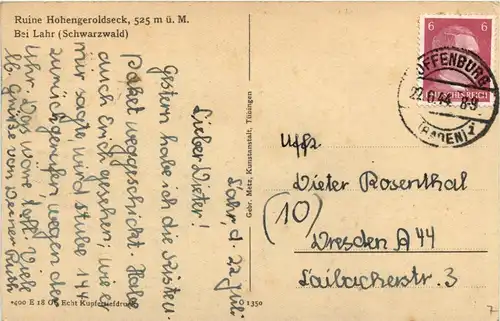 Ruine Hohengeroldseck, 525 m ü. M.
Bei Lahr (Schwarzwald)
6 6
DEUTSCHES REICH
OFFENBURG
22.6.44 8-9
(BADEN) 1
Lahr, d. 22 Juli
Lieber Dieter!
Gestern habe ich die Kisten u.
Paket weggeschickt. Habe
auch Erich gesehen, wie er
mir sagte wird Stube 144
zurückgerufen wegen der
Uhr. Das wäre toll. Viele
lb. Grüsse von Werner
Gebr. Metz, Kunstanstalt, Tübingen
Uffz.
Dieter Rosenthal
(10)
Dresden A 44
Laibacherstr. 3
*400 E 18 G Echt Kupfertiefdruck
O 1350
7